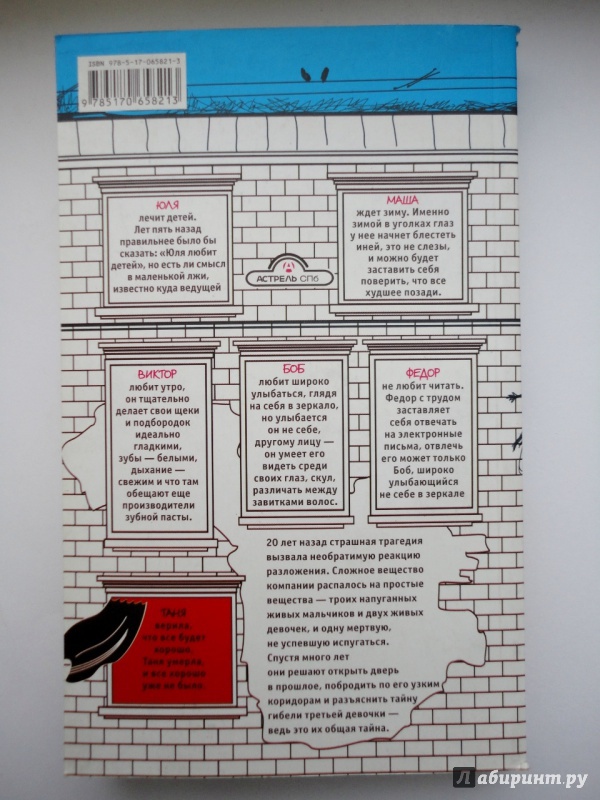 ISBN 978-5-17-065821-3
9 785170 658213
ЮЛЯ
лечит детей.
Лет пять назад
правильнее было бы
сказать: «Юля любит
детей», но есть ли смысл
в маленькой лжи,
известно куда ведущей
МАША
ждет зиму. Именно
зимой в уголках глаз
у нее начнет блестеть
иней, это не слезы,
и можно будет
заставить себя
поверить, что все
худшее позади.
АСТРЕЛЬ СПб
ВИКТОР
любит утро,
он тщательно
делает свои щеки
и подбородок
идеально
гладкими,
зубы — белыми,
дыхание —
свежим и что там
обещают еще
производители
зубной пасты.
БОБ
любит широко
улыбаться, глядя
на себя в зеркало,
но улыбается
он не себе,
другому лицу —
он умеет его
видеть среди
своих глаз, скул,
различать между
завитками волос.
ФЕДОР
не любит читать.
Федор с трудом
заставляет
себя отвечать
на электронные
письма, отвлечь
его может только
Боб, широко
улыбающийся
не себе в зеркале
20 лет назад страшная трагедия
вызвала необратимую реакцию
разложения. Сложное вещество
компании распалось на простые
вещества — троих напуганных
живых мальчиков и двух живых
девочек, и одну мертвую,
не успевшую испугаться.
Спустя много лет
они решают открыть дверь
в прошлое, побродить по его узким
коридорам и разъяснить тайну
гибели третьей девочки —
ведь это их общая тайна.
ТАНЯ
верила,
что все будет
хорошо.
Таня умерла,
и все хорошо
уже не было.
Лабиринт.ру